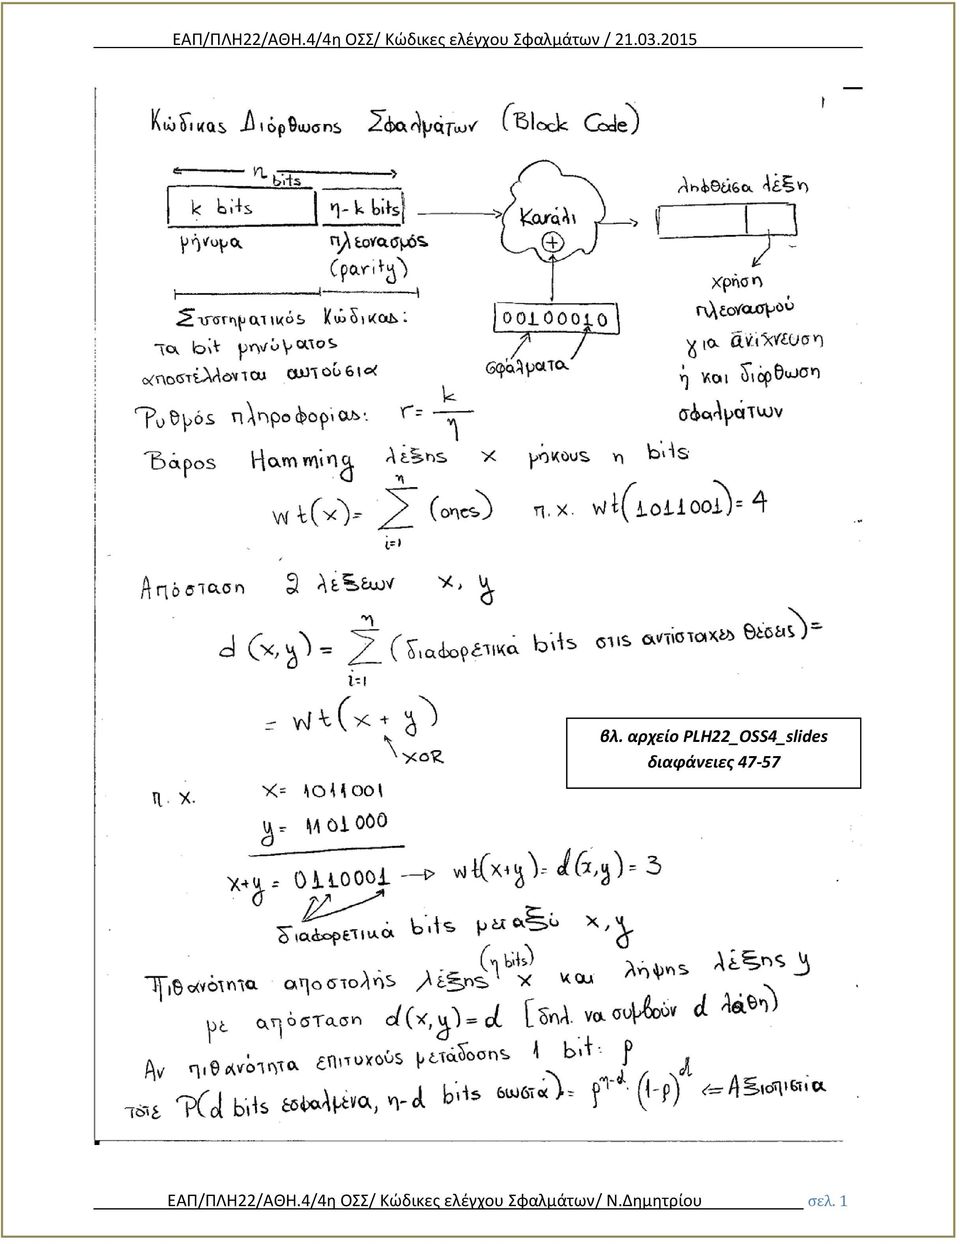 ΕΑΠ/ΠΛΗ22/ΑΘΗ.4/4η ΟΣΣ/ Κώδικες ελέγχου Σφαλμάτων / 21.03.2015
1
Κώδικας Διόρθωσης Σφαλμάτων (Block Code)
n bits
k bits
n-k bits
μήνυμα
πλεονασμός
(parity)
Κανάλι
+
ληφθείσα λέξη
Συστηματικός Κώδικας:
τα bit μηνύματος
αποστέλλονται αυτούσια
00100010
σφάλματα
χρήση
πλεονασμού
για ανίχνευση
ή και διόρθωση
σφαλμάτων
Ρυθμός πληροφορίας: r = k/n
Βάρος Hamming λέξης x μήκους n bits
wt(x) = n Σ i=1 (ones) π.χ. wt(1011001) = 4
Απόσταση 2 λέξεων x, y
d(x,y) = n Σ i=1 (διαφορετικά bits στις αντίστοιχες θέσεις) =
= wt(x + y)
XOR
βλ. αρχείο PLH22_OSS4_slides
διαφάνειες 47-57
π.χ. x = 1011001
y = 1101000
x+y = 0110001 → wt(x+y) = d(x,y) = 3
διαφορετικά bits μεταξύ x, y
Πιθανότητα αποστολής λέξης (n bits) x και λήψης λέξης y
με απόσταση d(x,y) = d [δηλ. να συμβούν d λάθη)
Αν πιθανότητα επιτυχούς μετάδοσης 1 bit: p
τότε P(d bits εσφαλμένα, n-d bits σωστά) = p^(n-d) · (1-p)^d ⇐ Αξιοπιστία
ΕΑΠ/ΠΛΗ22/ΑΘΗ.4/4η ΟΣΣ/ Κώδικες ελέγχου Σφαλμάτων/ Ν.Δημητρίου σελ. 1